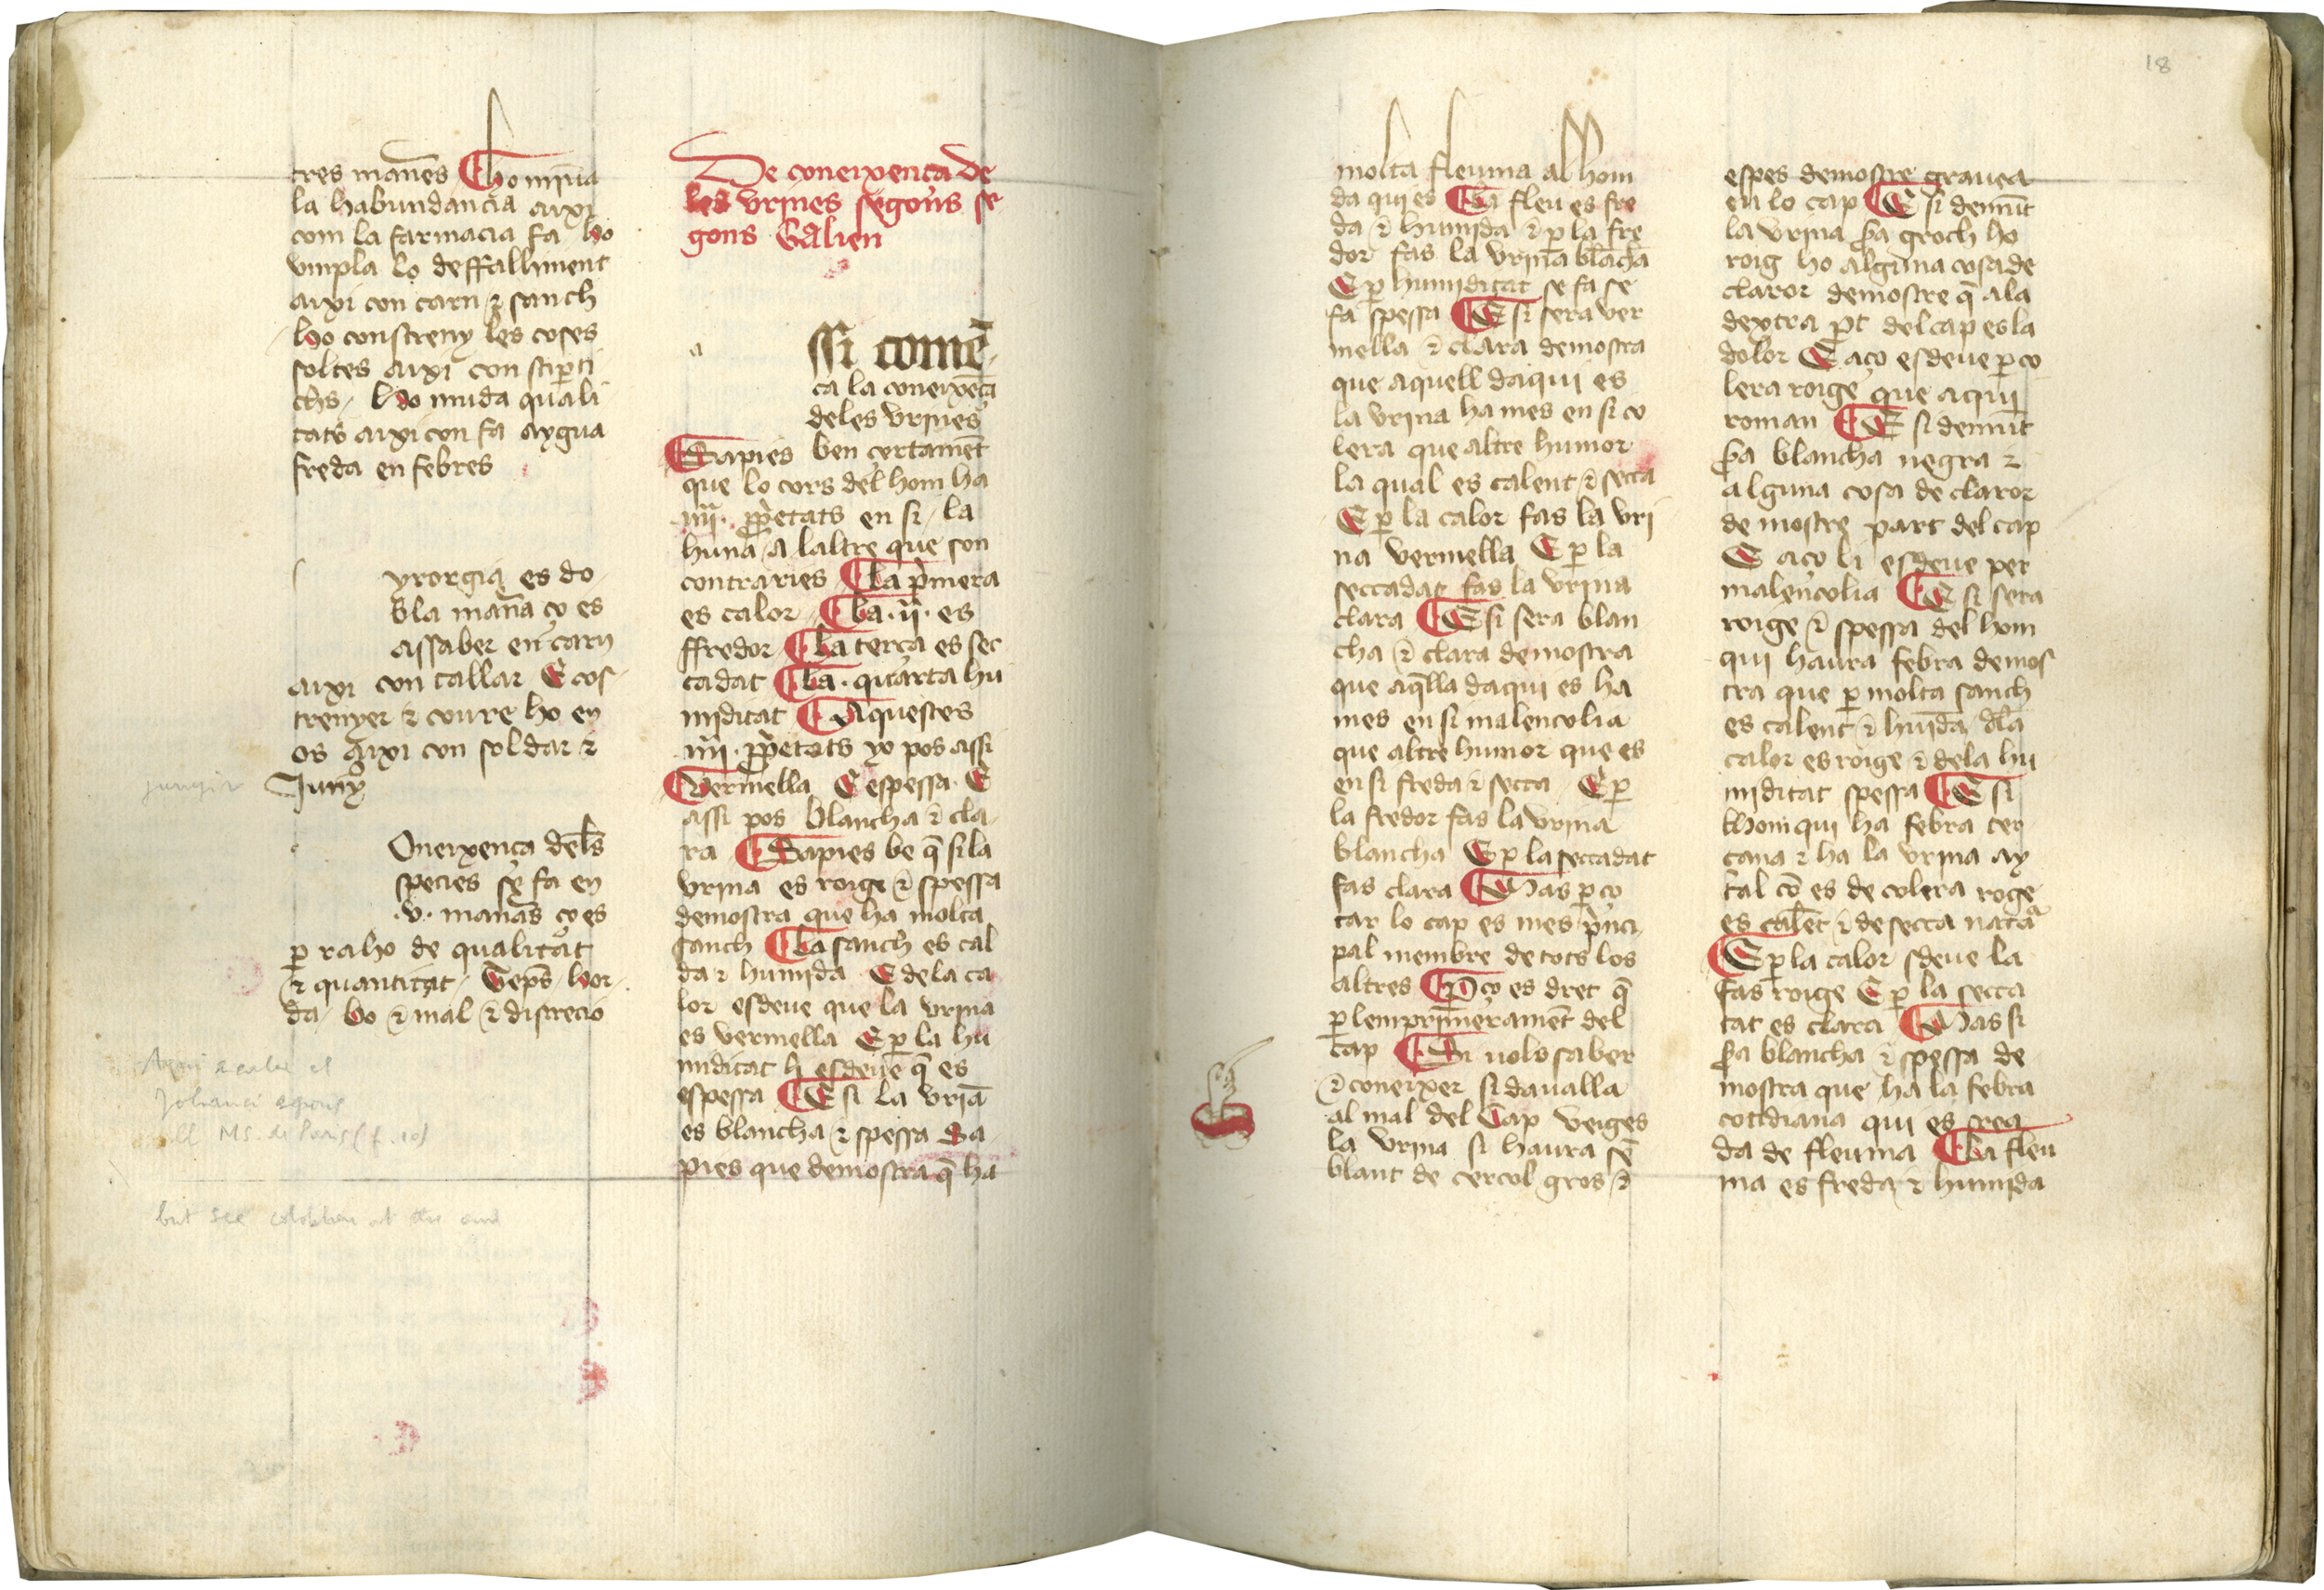 tres man̄es Ho minua
la habundancia aixi
com la farmacia fa ho
umpla lo deffalliment
aixi con carn ⁊ sanch
ho constreny les coses
soltes aixi con
ho muda quali
tats aixi con fa aygua
freda en febres
yrorgia es do
bla man̄a ço es
assaber en carn
aixi con tallar E cos
trenyer ⁊ coure ho en
os aixi con soldar ⁊
Juny
jungir
Oneixença dels
species se fa en
.v. man̄as ço es
ꝑ raho de qualitat
⁊ quantitat Teps̄ hor
da bo ⁊ mal ⁊ discrecio
Johanci
MS. de Paris (f. 10)
but see colophon at the end
De coneixença de
les vrines segons se
gons Galien
a
ssi comē
ça la coneixēça
deles vrines
Sapies ben certamēt
que lo cors del hom ha
.iiii. ꝓpietats en si la
huna a laltre que son
contraries La pͥmera
es calor La .ii. es
ffredor La terça es sec
cadat La . quarta hu
miditat Aquestes
.iiii. ꝓpietats yo pos assi
Vermella E espessa E
assi pos blancha ⁊ cla
ra Sapies be q̄ si la
vrina es roige ⁊ spessa
demostra que ha molta
sanch La sanch es cal
da ⁊ humida E de la ca
lor esdeue que la vrina
es vermella E ꝑ la hu
miditat li esdeue q̄ es
espessa E si la vrīa
es blancha ⁊ spessa Sa
pies que demostra q̄ ha
18
molta fleuma al hom
da qui es La fleu es fre
da ⁊ humida ⁊ ꝑ la fre
dor fas la vrina blācha
E ꝑ humiditat se fa se
fa spessa E si sera ver
mella ⁊ clara demostra
que aquell daqui es
la vrina ha mes en si co
lera que altre humor
la qual es calent ⁊ secca
E ꝑ la calor fas la vri
na vermella E ꝑ la
seccadat fas la vrina
clara E si sera blan
cha ⁊ clara demostra
que aq̄lla daqui es ha
mes en si malencolia
que altre humor que es
en si freda ⁊ secca E ꝑ
la fredor fas la vrina
blancha E ꝑ la seccadat
fas clara Mas ꝑ ço
car lo cap es mes pͥnci
pal membre de tots los
altres P ço es dret q̄
ꝑlem pͥmeramēt del
cap Si uols saber
⁊ coneixer si daualla
al mal del Cap veiges
la vrina si haura sē
blant de cercol gros ⁊
espes demostre grauea
en lo cap E si demūt
la vrina ẜa groch ho
roig ho alguna cosa de
claror demostre q̄ a la
dextra ꝑt del cap es la
dolor E aço esdeue ꝑ co
lera roige que aqui
roman E si demūt
ẜa blancha negra ⁊
alguna cosa de claror
demostre part del cap
E aço li esdeue per
malencolia E si sera
roige ⁊ spessa del hom
qui haura febra demos
tra que ꝑ molta sanch
es calent ⁊ huīda dla
calor es roige ⁊ de la hu
miditat spessa E si
lhom qui ha febra ter
çana ⁊ ha la vrina ay
tal cō es de colera roge
es calēt ⁊ de secca natā
E ꝑ la calor sdeue la
fas roige E ꝑ la secca
tat es clara Mas si
ẜa blancha ⁊ spessa de
mostra que ha la febra
cotidiana qui es crea
da de fleuma La fleu
ma es freda ⁊ humida